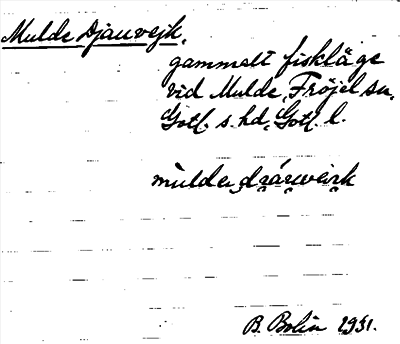 Mulde Djauvejk,
gammalt fiskläge
vid Mulde, Fröjel sn,
Gotl. s. hd, Gotl. l.
B. Bolin 1931.